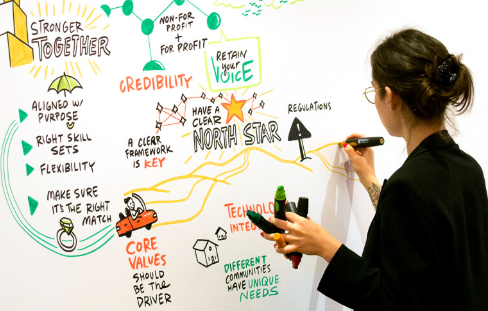 STRONGER
TOGETHER
NON-FOR
PROFIT
+
FOR PROFIT
RETAIN
your
VOICE
CREDIBILITY
ALIGNED W/
PURPOSE
RIGHT SKILL
SETS
FLEXIBILITY
MAKE SURE
IT'S THE RIGHT
MATCH
A CLEAR
FRAMEWORK
IS KEY
HAVE A
CLEAR
NORTH STAR
REGULATIONS
CORE
VALUES
SHOULD
BE THE
DRIVER
DIFFERENT
COMMUNITIES
HAVE UNIQUE
NEEDS